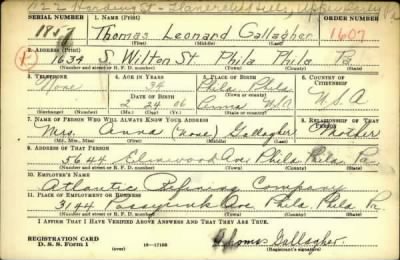 SERIAL NUMBER 1. NAME (Print) ORDER NUMBER
1857 Thomas Leonard Gallagher 1607
(First) (Middle) (Last)
2. ADDRESS (Print)
1634 S. Wilton St. Phila Phila Pa.
(Number and street or R. F. D. number) (Town) (County) (State)
3. TELEPHONE 4. AGE IN YEARS 5. PLACE OF BIRTH 6. COUNTRY OF CITIZENSHIP
None 34 Phila Phila
DATE OF BIRTH (Town or county)
2 24 06 U.S.A. U.S.A
(Mo.) (Day) (Yr.) (State or country)
7. NAME OF PERSON WHO WILL ALWAYS KNOW YOUR ADDRESS 8. RELATIONSHIP OF THAT PERSON
Mrs. Anna (none) Gallagher Mother
(Mr., Mrs., Miss) (First) (Middle) (Last)
9. ADDRESS OF THAT PERSON
5644 Elmwood Ave Phila. Phila. Pa.
(Number and street or R. F. D. number) (Town) (County) (State)
10. EMPLOYER'S NAME
Atlantic Refining Company
11. PLACE OF EMPLOYMENT OR BUSINESS
3144 Passyunk Ave Phila. Phila Pa.
(Number and street or R. F. D. number) (Town) (County) (State)
I AFFIRM THAT I HAVE VERIFIED ABOVE ANSWERS AND THAT THEY ARE TRUE.
REGISTRATION CARD
D. S. S. Form 1 (over) 16—17105 Thomas Gallagher.
(Registrant's signature)